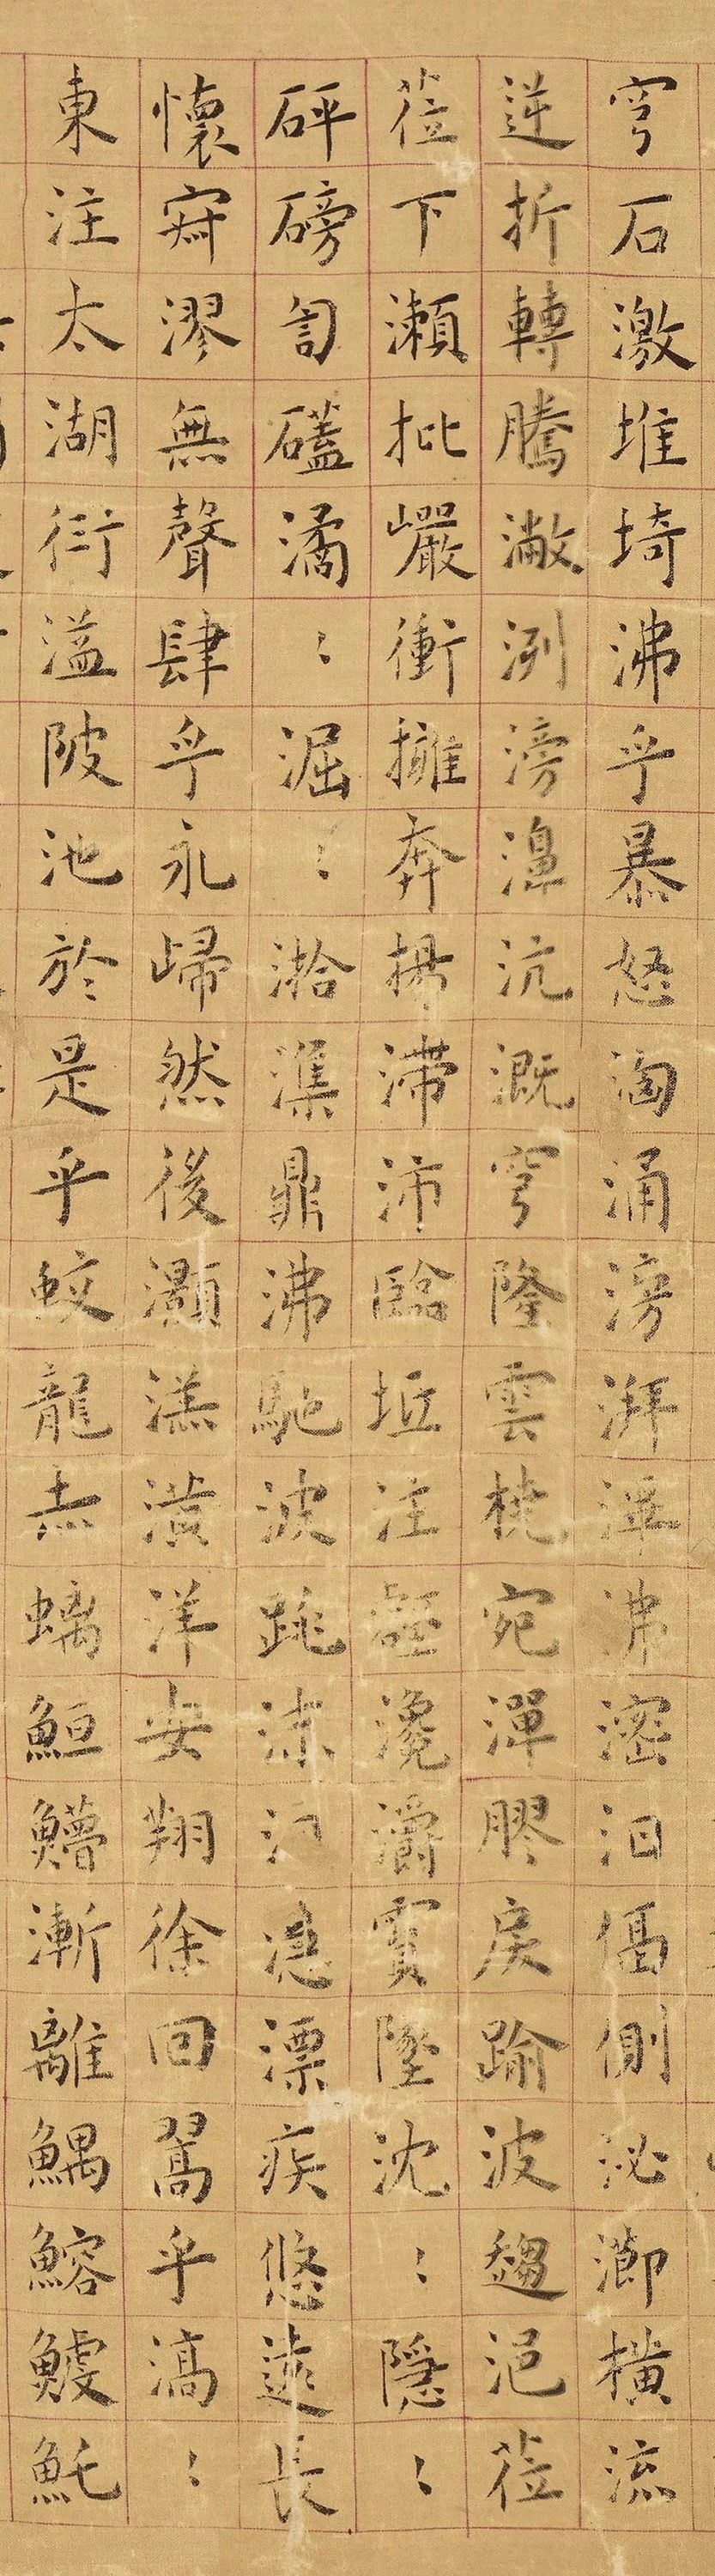 穹石激堆埼沸乎暴怒洶涌滂湃滭沸滵汩偪側泌瀄橫流
逆折轉騰潎洌滂濞沆溉穹隆雲橈宛潬膠戾踰波趨浥蒞
蒞下瀨批巖衝擁奔揚滯沛臨坻注壑瀺灂霣墜沈：隱：
砰磅訇礚潏：淈：湁潗鼎沸馳波跳沫汩㴔漂疾悠遠長
懷寂漻無聲肆乎永歸然後灝溔潢洋安翔徐回翯乎滈：
東注太湖衍溢陂池於是乎蛟龍赤螭䱭䲛漸離鰅鰫鰬魠